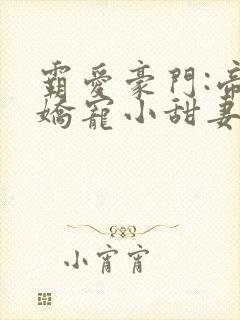 霸愛豪門:帝
嬌寵小甜妻
小宵宵